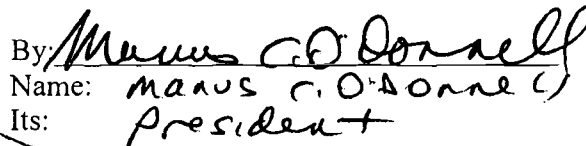 By: Manus C. O'Donnell
Name: Manus C. O'Donnell
Its: President